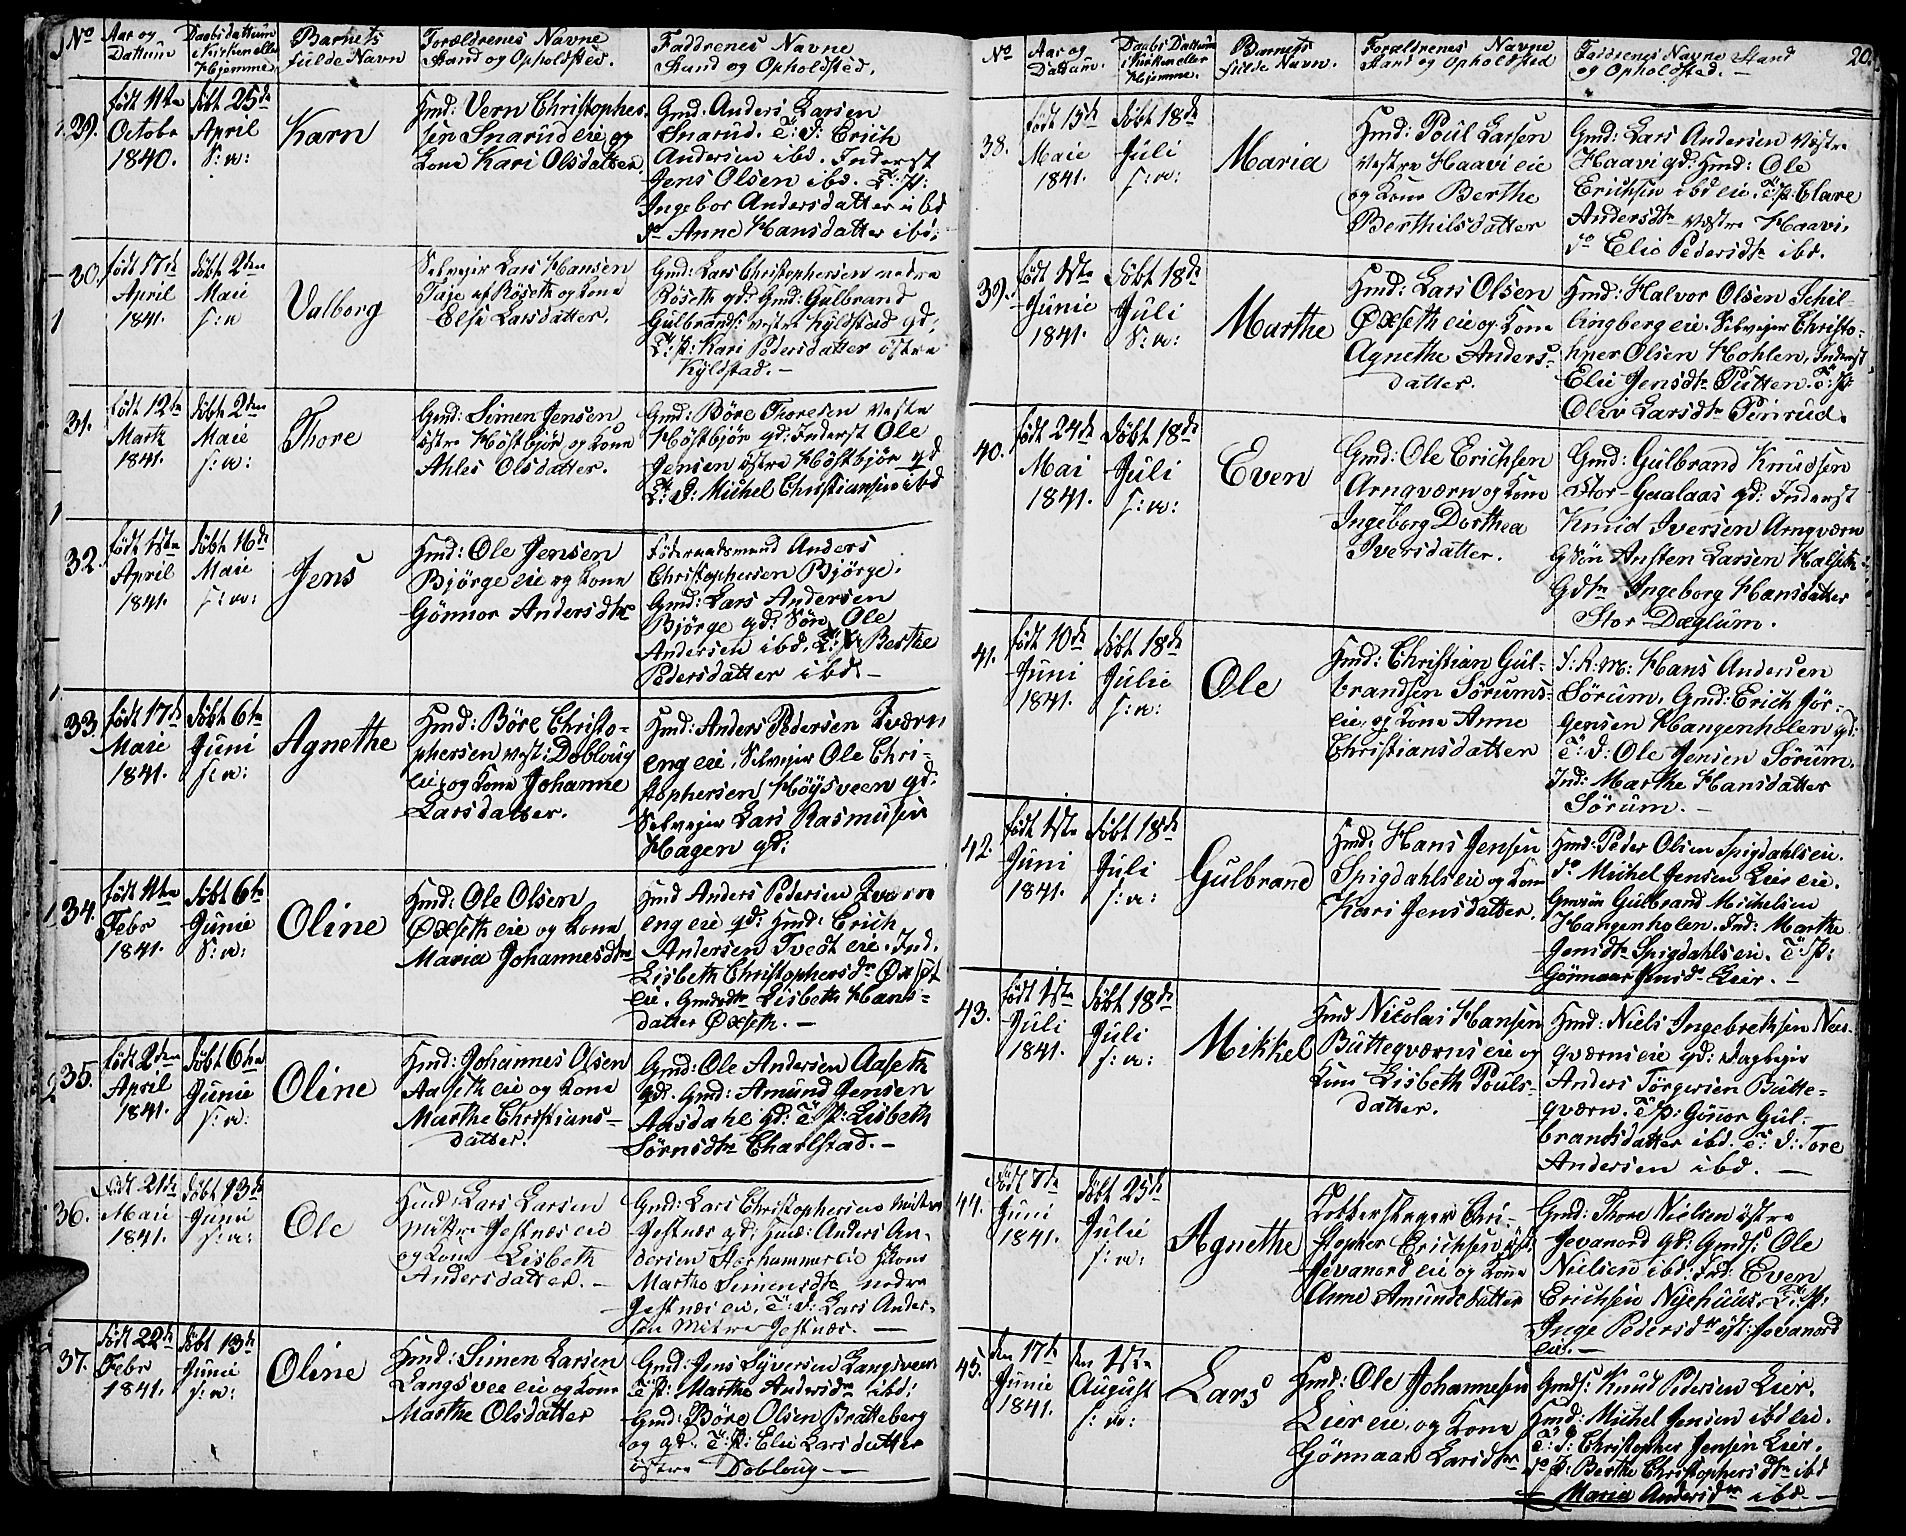 No
Aar og
Dattum
Daabsdattum
i Kirken eller
Hjemme.
Barnets
fulde Navn
Forældrenes Navne
Stand og Opholdsted.
Faddrenes Navne
Stand og Opholdsted.
29.
født 11te
Octobr
1840.
døbt 25de
April
S: w:
Karn
Hmd: Vern Christopher-
sen Snarud eie og
Kone Kari Olsdatter.
Gmd: Anders Larsen
Snarud. T: D: Erich
Andersen ibd. Inderst
Jens Olsen ibd. T: P:
Ingebor Andersdatter ibd
do Anne Hansdatter ibd:
30.
født 17de
April
1841.
døbt 2den
Maie
s: w
Valborg
Selvejer Lars Hansen
Taje af Røseth og Kone
Else Larsdatter.
Gmd: Lars Christophersen nedre
Røseth gd: Gmd: Gulbrand
Gulbrands: vestre Kyldstad gd.
T: P: Kari Pedersdatter østre
Kyldstad. —
31.
født 12te
Martz
1841.
døbt 2den
Maie
s: w:
Thore
Gmd: Simen Jensen
østre Høstbjør og Kone
Ahles Olsdatter.
Gmd: Børe Thoresen vestre
Høstbjør gd: Inderst Ole
Jensen østre Høstbjør gd
T: D: Michel Christiansen ibd
32.
født 1ste
April
1841.
døbt 16de
Maie
s: w:
Jens
Hmd: Ole Jensen
Bjørge eie og Kone
Gønnor Andersdtr
Føderaadsmand Anders
Christophersen Bjørge.
Gmd: Lars Andersen
Bjørge gd: Søn Ole
Andersen ibd. T: P: Berthe
Pedersdatter ibd. —
33.
født 17de
Maie
1841.
døbt 6te
Juni
s: w:
Agnethe
Hmd: Børe Christo-
phersen vest: Dobloug
eie og Kone Johanne
Larsdatter.
Hmd: Anders Pedersen Kværn
eng eie, Selvejer Ole Chri-
stophersen Høysveen gd:
Selvejer Lars Rasmusen
Hagen gd:
34.
født 11te
Febr
1841.
døbt 6te
Junie
S: w:
Oline
Hmd: Ole Olsen
Oxseth eie og Kone
Maria Johannesdtr
Hmd Anders Pedersen Kværn
eng eie gd: Hmd: Erich
Andersen Tvedt eie. Ind.
Lisbeth Christophersdtr Oxset
eie. Gmdsdtr Lisbeth Hans-
datter Oxseth. —
35.
født 2den
April
1841.
døbt 6te
Junie
s: w:
Oline
Hmd: Johannes Olsen
Aaseth eie og Kone
Marthe Christians-
datter.
Gmd: Ole Andersen Aaseth
gd. Gmd: Amund Jensen
Aasdahl gd: T: P: Lisbeth
Sørnsdtr Charlstad. —
36.
født 21de
Maie
1841.
døbt 13de
Junie
s: w:
Ole
Hmd: Lars Larsen
Mittre Jestnæs eie
og Kone Lisbeth
Andersdatter. —
Gmd: Lars Christophersen Mittre
Jestnæs gd: Hmd: Anders An-
dersen Storhammer eie Kone
Marthe Simensdtr nedre
Jestnæs eie, T: D: Lars Ander-
sen Mittre Jestnæs. —
37.
født 22de
Febr
1841.
døbt 13de
Junie
s: w:
Oline
Hmd: Simen Larsen
Langsvee eie og Kone
Marthe Olsdatter
Gmd: Jens Syversen Langsveen
T: P: Marthe Andersdtr ibd:
Gmd: Børe Olsen Bratteberg
og gd. T: P: Elie Larsdatter
østre Dobloug —
No
Aar og
Dattum.
Daabs Dattum
i Kirken eller
Hjemme.
Barnets
fulde Navn.
Forældrenes Navne
Stand og Opholdsted
Faddrenes Navne Stand
og Opholdsted. —
20.
38.
født 15de
Maie
1841.
døbt 18de
Juli
s: w:
Maria
Hmd: Poul Larsen
vestre Haavi eie
og Kone Berthe
Berthilsdatter
Gmd: Lars Andersen Vestre
Haavi gd: Hmd: Ole
Erichsen ibd eie. T: P: Clare
Andersdtr Vestre Haavi.
do Elie Pedersdtr ibd.
39.
født 1ste
Junie
1841.
døbt 18de
Juli
S: w:
Marthe
Hmd: Lars Olsen
Oxseth eie og Kone
Agnethe Anders-
datter.
Hmd: Halvor Olsen Schil-
lingberg eie. Selvejer Christo-
pher Olsen Hohlen, Inderst
Elie Jensdtr Putten. T: P:
Oliv Larsdtr Penrud.
40.
født 24de
Mai
1841.
døbt 18de
Juli
s: w:
Even
Gmd: Ole Erichsen
Arnqværn og Kone
Ingeborg Dorthea
Iversdatter.
Gmd: Gulbrand Knudsen
Stor-Gaalaas gd: Inderst
Knud Iversen Arnqværn
G Søn Austen Larsen Halseth
Gdtr Ingeborg Hansdatter
Stor Dæglum.
41.
født 10de
Juni
1841.
døbt 18de
Julie
s: w:
Ole
Hmd: Christian Gul-
brandsen Sørums-
eie, og Kone Anne
Christiansdatter
F: R: M: Hans Andersen
Sørum, Gmd: Erich Jør-
gensen Hangenholen gd:
T: D: Ole Jensen Sørum.
Ind: Marthe Hansdatter
Sørum. —
42.
født 1ste
Juni
1841.
døbt 18de
Juli
s: w:
Gulbrand
Hmd. Hans Jensen
Spigdahls eie og Kone
Kari Jensdatter.
Hmd: Peder Olsen Spigdahls eie.
do Michel Jensen Lier eie.
Gmsøn Gulbrand Michelsen
Hangenholen. Ind: Marthe
Jensdtr Spigdahls eie. T: P:
Gønnaar Jensdtr Lier. —
43.
født 1ste
Juli
1841.
døbt 18de
Juli
s: w:
Mikkel
Hmd Nicolai Hansen
Butteqværns eie og
Kone Lisbeth Pouls-
datter.
Hmd: Niels Ingebrethsen Nes-
qværns eie gd: Jagtvejer
Anders Torgersen Butte-
qværn. T: P: Gønor Gul-
brandsdatter ibd. T: D: Tore
Andersen ibd. —
44.
født 7de
Juni
1841.
døbt 25de
Julie
s: w:
Agnethe
Kobberslager Chri-
stopher Erichsen øst:
Jevanord eie og Kone
Anne Amundsdatter
Gmd: Thore Nielsen østre
Jevanord gd: Gmds: Ole
Nielsen ibd: Ind: Even
Erichsen Nyehuus. T: P:
Inge Pedersdtr øst: Jevanord
eie. —
45.
den 17de
Junie
1841.
den 1ste
August
s: w:
Lars
Hmd: Ole Johannesen
Lier eie, og Kone
Gønnaar Larsdtr
Gmds: Knud Pedersen Lier.
Hmd: Michel Jensen ibd eie.
T: D: Christopher Jensen Lier.
do P: Berthe Christophersdtr ibd
Maria Andersdtr ibd. —